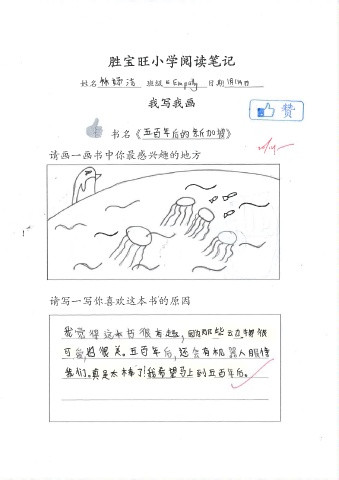 胜宝旺小学阅读笔记
姓名 林 洁 班级 4 Empathy 日期
我写我画
赞
书名《五百年后的新加坡》
请画一画书中你最感兴趣的地方
请写一写你喜欢这本书的原因
我觉得这本书很有趣，因为那些动物很
可爱，也很美。五百年后，还会有机器人服侍
我们。真是太棒了！我希望马上到五百年后。